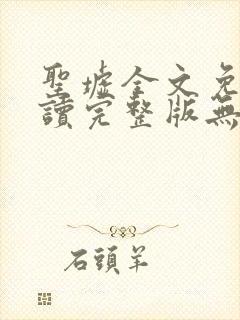 聖墟全文免
讀完整版無
石頭羊